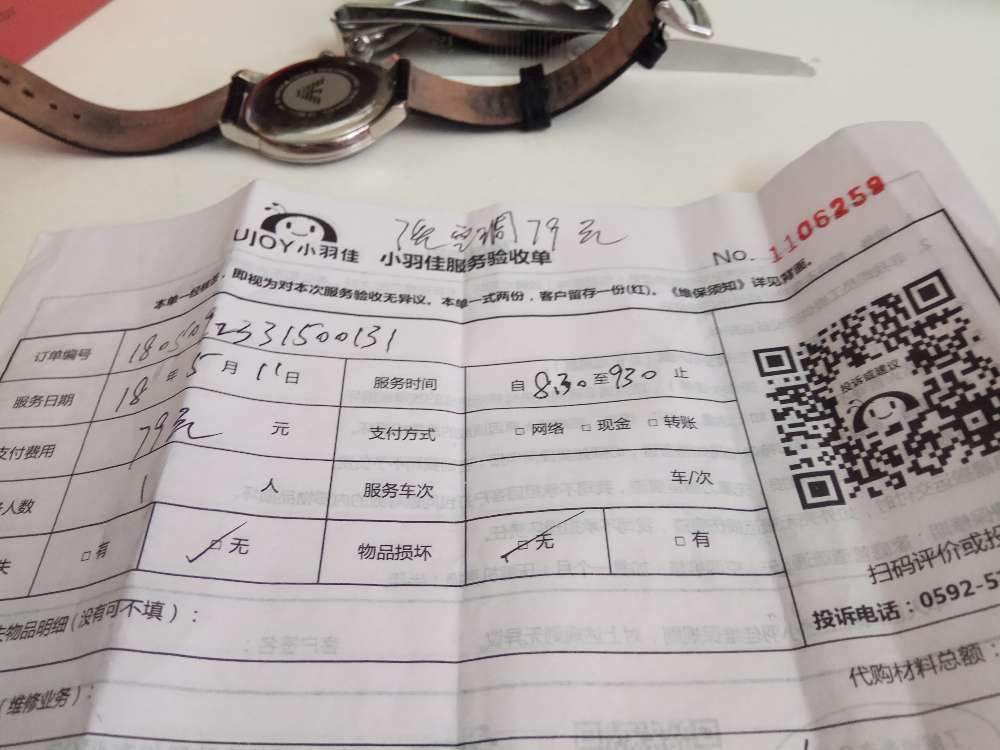 UJOY小羽佳 小羽佳服务验收单 空调79元
No. 1106259
本单一经签字,即视为对本次服务验收无异议。本单一式两份,客户留存一份(红)。《维保须知》详见背面。
订单编号 1805092331500131
服务日期 18年5月11日 服务时间 自8:30至930止
支付费用 79元 元 支付方式 □网络 □现金 □转账
人数 1 人 服务车次 车/次
失 □有 ✓□无 物品损坏 ✓□无 □有
失物品明细(没有可不填):
(维修业务):
投诉或建议
扫码评价或投
投诉电话:0592-57
代购材料总额: